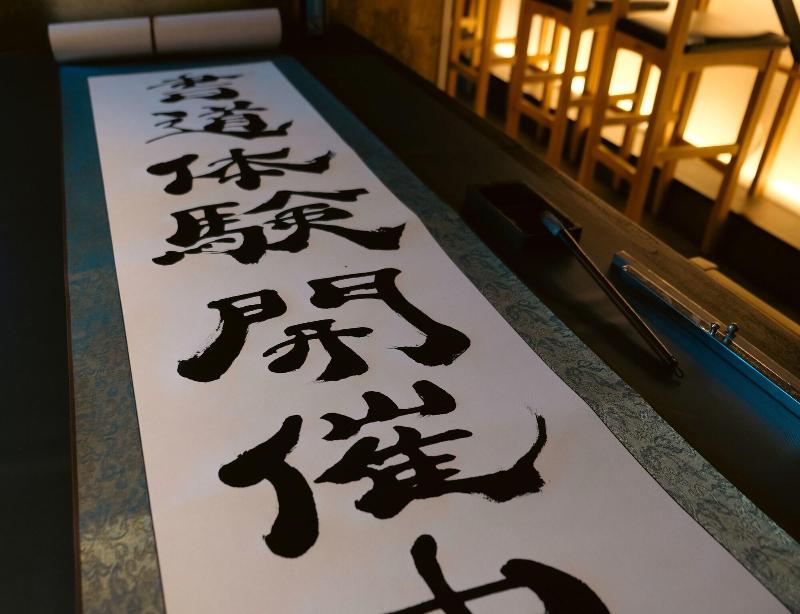 書道体験開催中